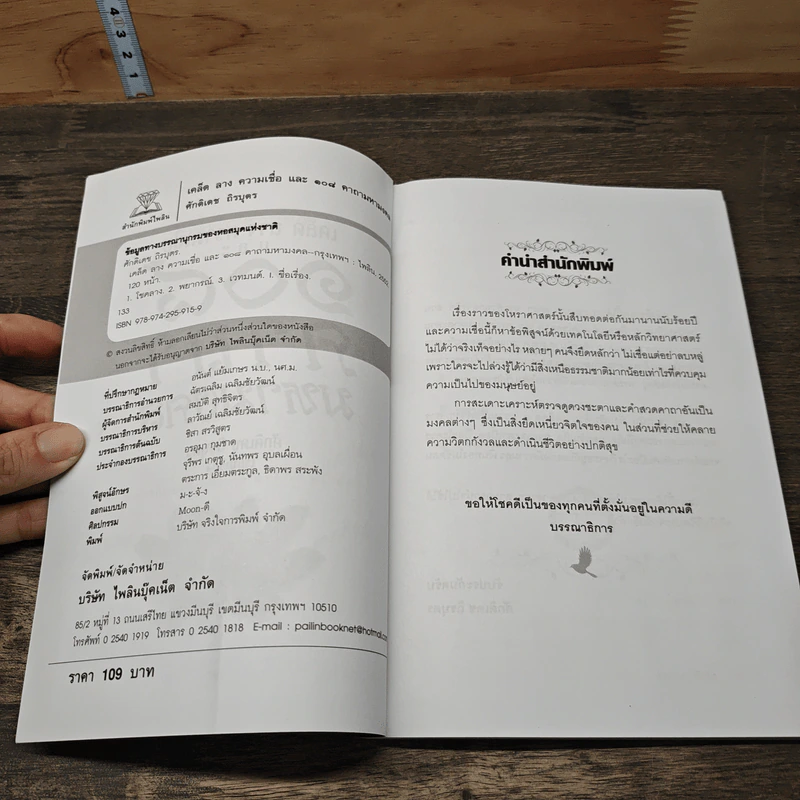 4 3 2 1
สำนักพิมพ์ไพลิน
เคล็ด ลาง ความเชื่อ และ ๑๐๘ คาถามหามงคล
ศักดิเดช ถิรบุตร
ข้อมูลทางบรรณานุกรมของหอสมุดแห่งชาติ
ศักดิเดช ถิรบุตร.
เคล็ด ลาง ความเชื่อ และ ๑๐๘ คาถามหามงคล--กรุงเทพฯ : ไพลิน,
120 หน้า.
1. โชคลาง. 2. พยากรณ์. 3. เวทมนต์. I. ชื่อเรื่อง.
133
ISBN 978-974-295-915-9
© สงวนลิขสิทธิ์ ห้ามลอกเลียนไม่ว่าส่วนหนึ่งส่วนใดของหนังสือ
นอกจากจะได้รับอนุญาตจาก บริษัท ไพลินบุ๊คเน็ต จำกัด
ที่ปรึกษากฎหมาย อนันต์ แย้มเกษร น.บ., นศ.ม.
บรรณาธิการอำนวยการ ฉัตรเฉลิม เฉลิมชัยวัฒน์
ผู้จัดการสำนักพิมพ์ สมบัติ สุทธิจิตร
บรรณาธิการบริหาร ลาวัณย์ เฉลิมชัยวัฒน์
บรรณาธิการต้นฉบับ ชิสา สรวิสูตร
ประจำกองบรรณาธิการ อรอุมา กุมชาด
จุรีพร เกตุชู, นันทพร อุบลเผื่อน
พิสูจน์อักษร ตระการ เอี่ยมตระกูล, ธิดาพร สระพัง
ออกแบบปก ม-ะ-จ้-ง
ศิลปกรรม Moon-ดี
พิมพ์ บริษัท จริงใจการพิมพ์ จำกัด
จัดพิมพ์/จัดจำหน่าย
บริษัท ไพลินบุ๊คเน็ต จำกัด
85/2 หมู่ที่ 13 ถนนเสรีไทย แขวงมีนบุรี เขตมีนบุรี กรุงเทพฯ 10510
โทรศัพท์ 0 2540 1919 โทรสาร 0 2540 1818 E-mail : pailinbooknet@hotmail.com
ราคา 109 บาท
คำนำสำนักพิมพ์
เรื่องราวของโหราศาสตร์นั้นสืบทอดต่อกันมานานนับร้อยปี
และความเชื่อนี้ก็หาข้อพิสูจน์ด้วยเทคโนโลยีหรือหลักวิทยาศาสตร์
ไม่ได้ว่าจริงเท็จอย่างไร หลายๆ คนจึงยึดหลักว่า ไม่เชื่อแต่อย่าลบหลู่
เพราะใครจะไปล่วงรู้ได้ว่ามีสิ่งเหนือธรรมชาติมากน้อยเท่าไรที่ควบคุม
ความเป็นไปของมนุษย์อยู่
การสะเดาะเคราะห์ตรวจดูดวงชะตาและคำสวดคาถาอันเป็น
มงคลต่างๆ ซึ่งเป็นสิ่งยึดเหนี่ยวจิตใจของคน ในส่วนที่ช่วยให้คลาย
ความวิตกกังวลและดำเนินชีวิตอย่างปกติสุข
ขอให้โชคดีเป็นของทุกคนที่ตั้งมั่นอยู่ในความดี
บรรณาธิการ